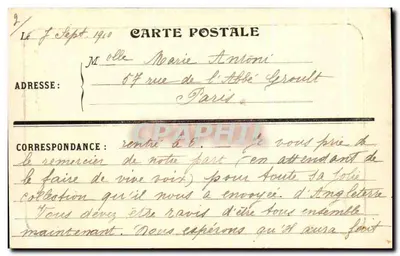 2/
CARTE POSTALE
Le 7 Sept. 1910
Melle Marie Antoni
ADRESSE :
57 rue de l'Abbé Groult
Paris
CPARAMA
CORRESPONDANCE : rentré à E. Je vous prie de
le remercier de notre part, (en attendant de
le faire de vive voix) pour toute sa jolie
collection qu'il nous a envoyée d'Angleterre
Vous devez être ravis d'être tous ensemble
maintenant. Nous espérons qu'il aura finit